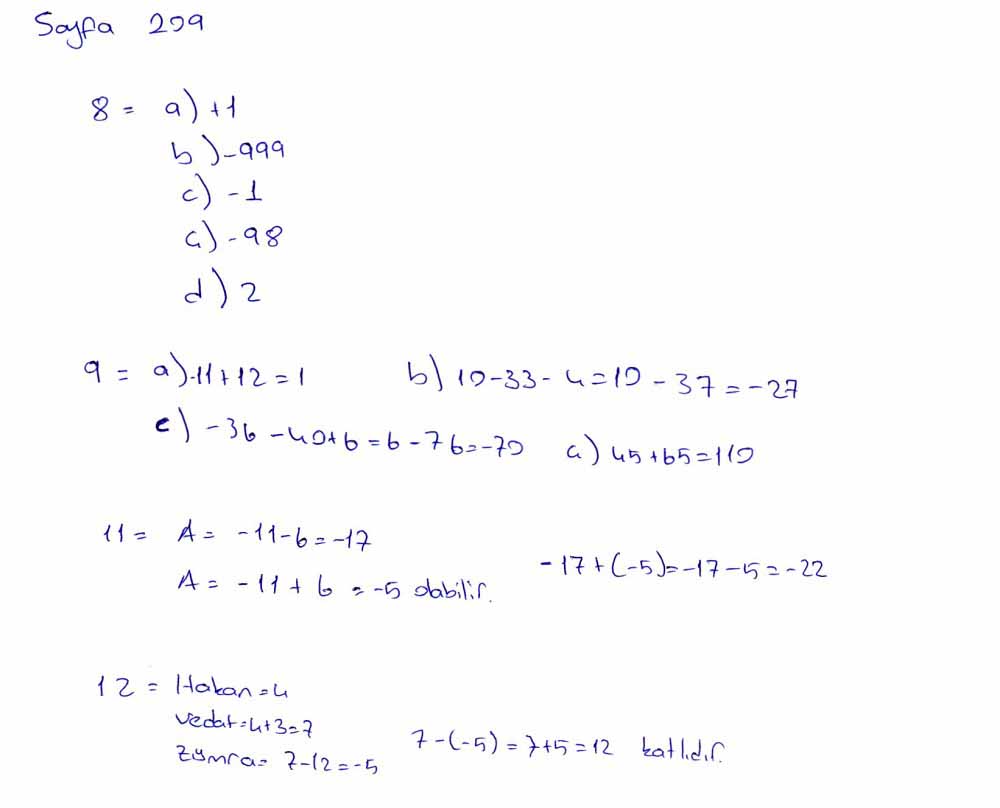 Sayfa 209
8 = a) +1
b) -999
c) -1
ç) -98
d) 2
9 = a) -11+12=1 b) 10-33-4=10-37=-27
c) -36-40+6=6-76=-70 ç) 45+65=110
11= A= -11-6=-17
A= -11+6=-5 olabilir. -17+(-5)=-17-5=-22
12= Hakan=4
Vedat=4+3=7
Zümra= 7-12=-5 7-(-5)=7+5=12 katlıdır.